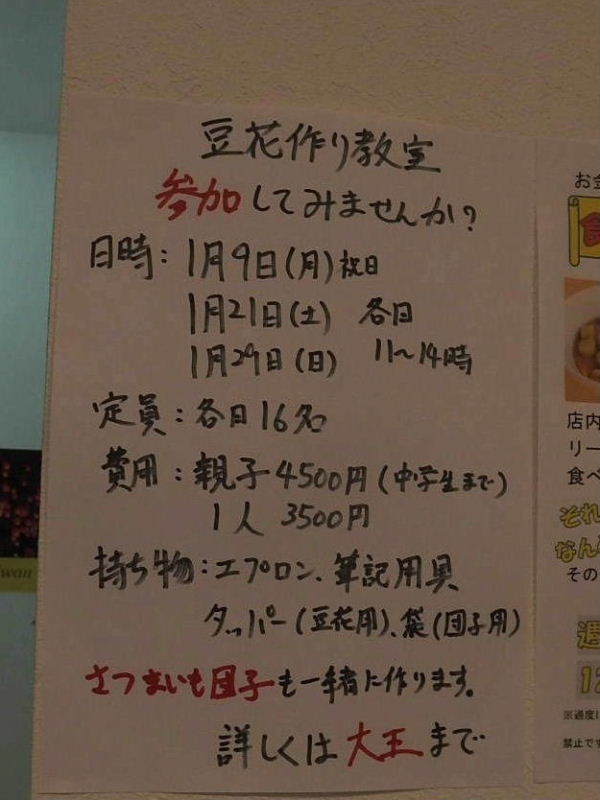 豆花作り教室
参加してみませんか?
日時:1月9日(月)祝日
1月21日(土) 各日
1月29日(日) 11~14時
定員:各日16名
費用:親子4500円(中学生まで)
1人 3500円
持ち物:エプロン、筆記用具
タッパー(豆花用)、袋(団子用)
さつまいも団子も一緒に作ります。
詳しくは大王まで
お金
店内
リー
食べ
それ
なん
その
週
12
※過度に
禁止で
wan